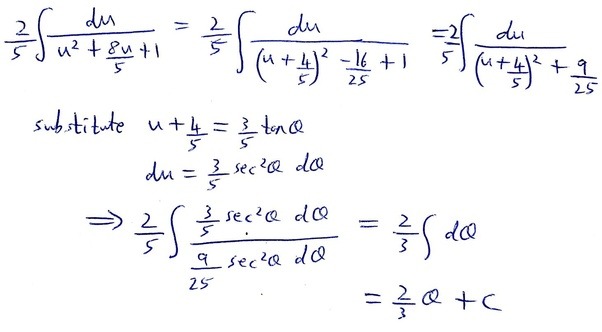 2/5 ∫ du/(u² + 8u/5 + 1) = 2/5 ∫ du/((u + 4/5)² - 16/25 + 1) = 2/5 ∫ du/((u + 4/5)² + 9/25)
substitute u + 4/5 = 3/5 tanθ
du = 3/5 sec²θ dθ
⇒ 2/5 ∫ (3/5 sec²θ dθ)/(9/25 sec²θ dθ) = 2/3 ∫ dθ
= 2/3 θ + C